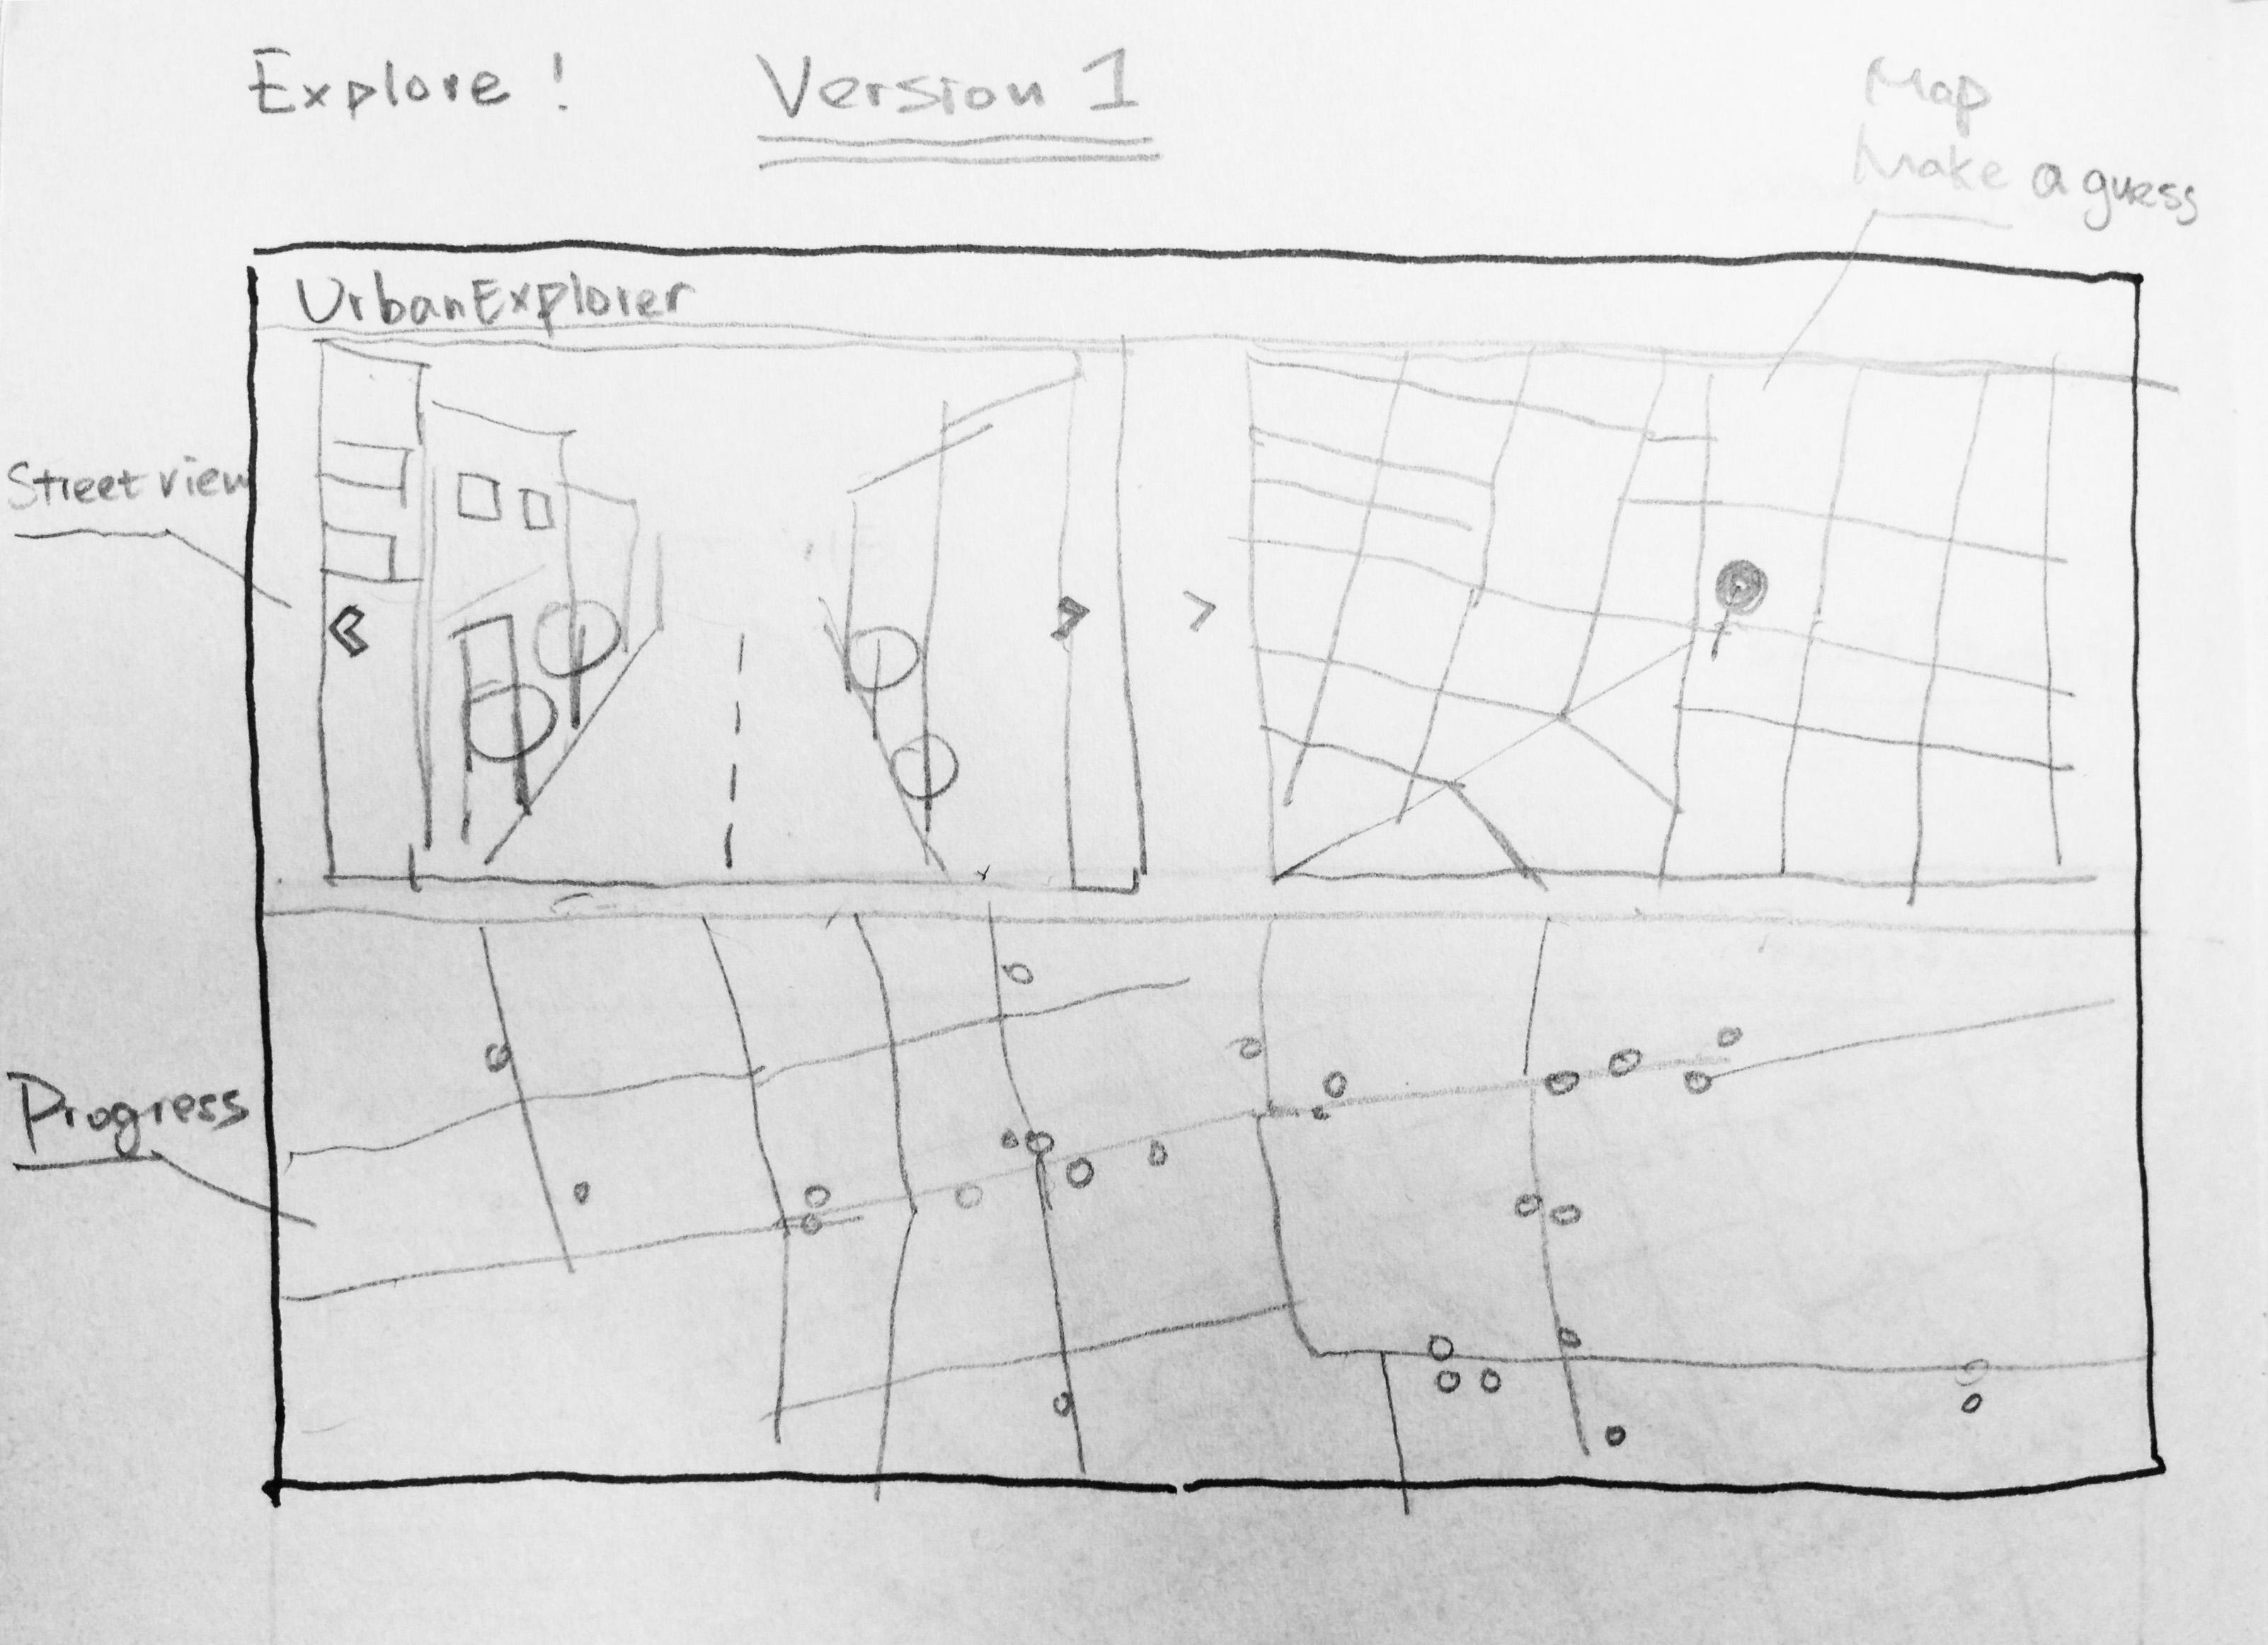 Explore! Version 1
Map
Make a guess
UrbanExplorer
Street view
Progress